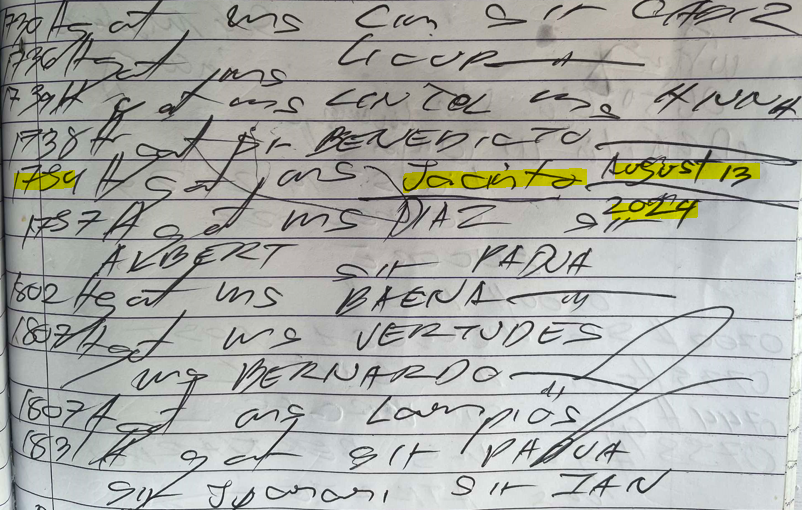 1730H gat ms Cun sir CADIZ
1736H gat ms LICUP
1739H gat ms LINTOL ms ANNA
1738H gat sir BENEDICTO
1754H gat ms Jacinto August 13
1757H gat ms DIAZ sir 2024
ALBERT sir PADUA
1802H gat ms BAENA
1807H gat ms VERTUDES
ms BERNARDO
1807H gat ms Lampios
1831H gat sir PADUA
sir sir IAN